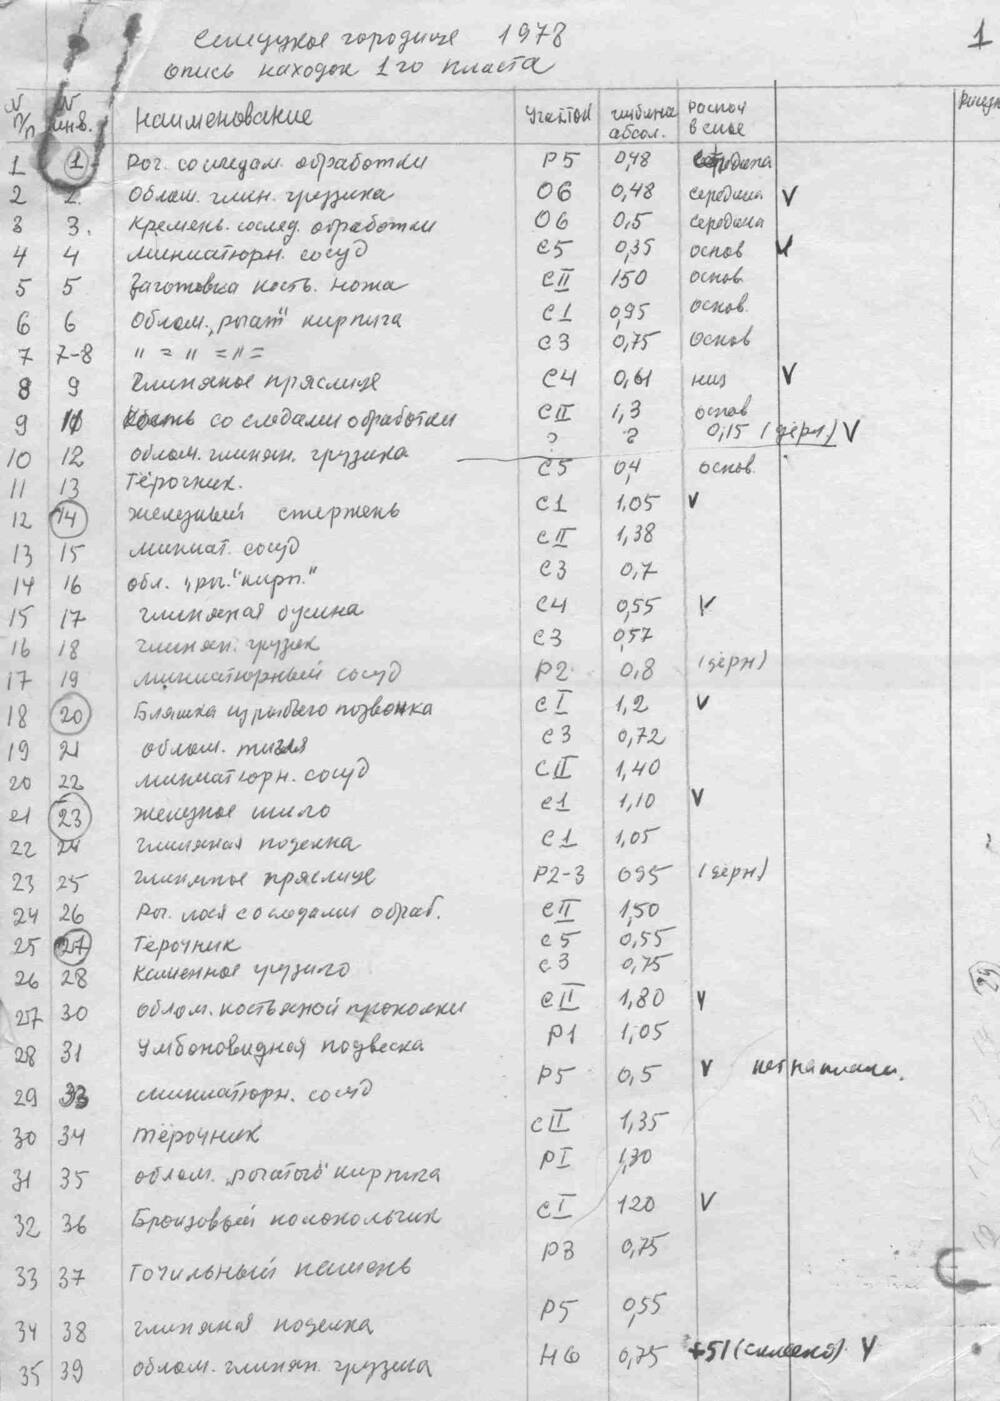 городище 1978 1
опись находок 1го пласта
N п/п N инв. Наименование Участок глубина абсол. распол в слое
1 1 Рог. со следам. обработки Р5 0,48 середина
2 2. Облом. глин. грузика О6 0,48 середина V
3 3. Кремень. со след. обработки О6 0,5 середина
4 4 миниатюрн. сосуд С5 0,35 основ V
5 5 Заготовка кость. ножа СII 150 основ
6 6 Облом. „рогат" кирпича С1 0,95 основ.
7 7-8 " = " = " = С3 0,75 основ
8 9 Глиняное пряслице С4 0,61 низ V
9 11 Кость со следами обработки СII 1,3 основ
10 12 облом. глинян. грузика ? ? 0,15 (дёрн) V
11 13 Тёрочник. С5 0,4 основ.
12 14 железный стержень С1 1,05 V
13 15 миниат. сосуд СII 1,38
14 16 обл. „рог." кирп." С3 0,7
15 17 глиняная бусина С4 0,55 V
16 18 глинян. грузик С3 0,57
17 19 миниатюрный сосуд Р2 0,8 (дёрн)
18 20 Бляшка из рыбьего позвонка СI 1,2 V
19 21 облом. тигля С3 0,72
20 22 миниатюрн. сосуд СII 1,40
21 23 железное шило С1 1,10 V
22 24 глиняная поделка С1 1,05
23 25 глиняное пряслице Р2-3 095 (дёрн)
24 26 Рог. лося со следами обраб. СII 1,50
25 27 Тёрочник С5 0,55
26 28 Каменное грузило С3 0,75
27 30 облом. костяной проколки СII 1,80 V
28 31 Умбоновидная подвеска Р1 1,05
29 33 миниатюрн. сосуд Р5 0,5 V нет на плане.
30 34 тёрочник СII 1,35
31 35 облом. „рогатого" кирпича РI 1,30
32 36 Бронзовый колокольчик СI 120 V
33 37 Точильный камень Р3 0,75
34 38 глиняная поделка Р5 0,55
35 39 облом. глинян. грузика Н6 0,75 +51 (склеено) V